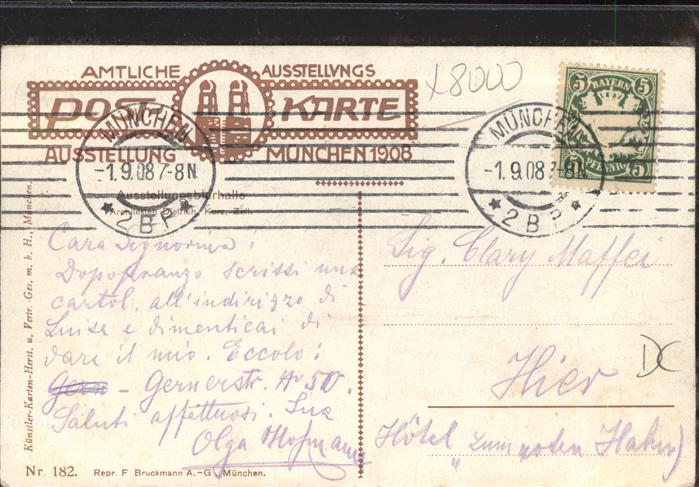 AMTLICHE AUSSTELLVNGS
POST KARTE
AUSSTELLUNG MÜNCHEN 1908
x8000
BAYERN
5 5
PFENNIG
5 5
MÜNCHEN
-1.9.08 7-8N
2 B.P.
MÜNCHEN
-1.9.08 7-8N
2 B.P.
Ausstellungsbierhalle
Architekten Dietrich, Kurz, Zell.
Cara Signorina!
Dopopranzo scrissi una
cartol. all'indirizzo di
Luisa e dimenticai di
dare il mio. Eccolo:
Gern - Gernerstr. No 50.
Saluti affettuosi. Sua
Olga Hofmann
Sig. Clary Maffei
Hier
Hôtel „zum roten Hahn)
DC
Künstler-Karten-Herst. u. Vertr. Ges. m. b. H., München.
Nr. 182. Repr. F Bruckmann A.-G., München.